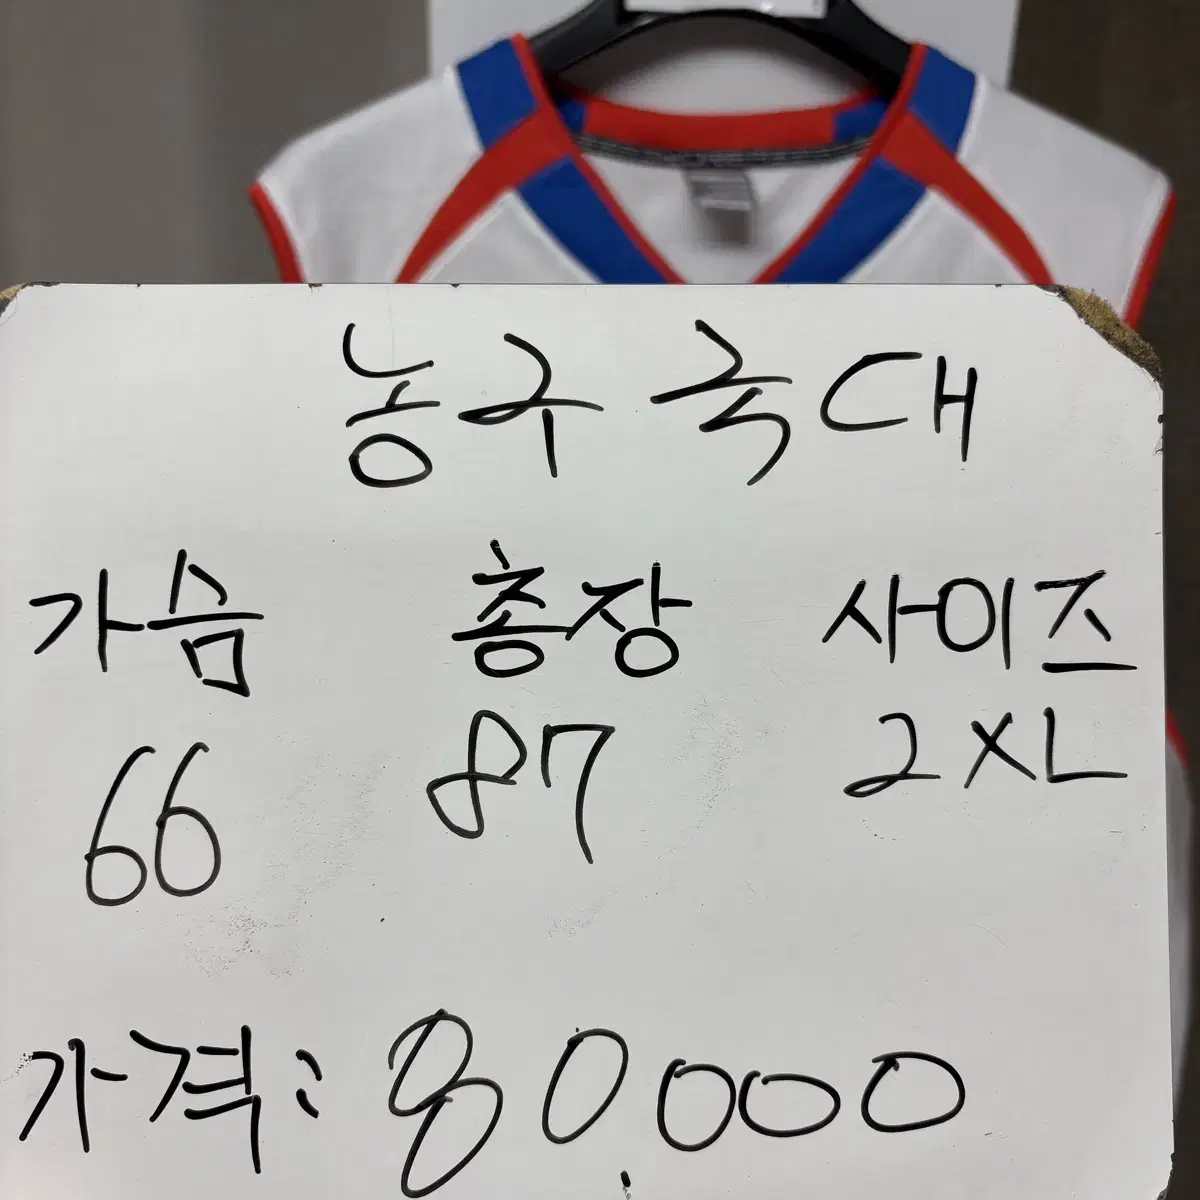 농구 국대
가슴 총장 사이즈
66 87 2XL
가격: 80,000